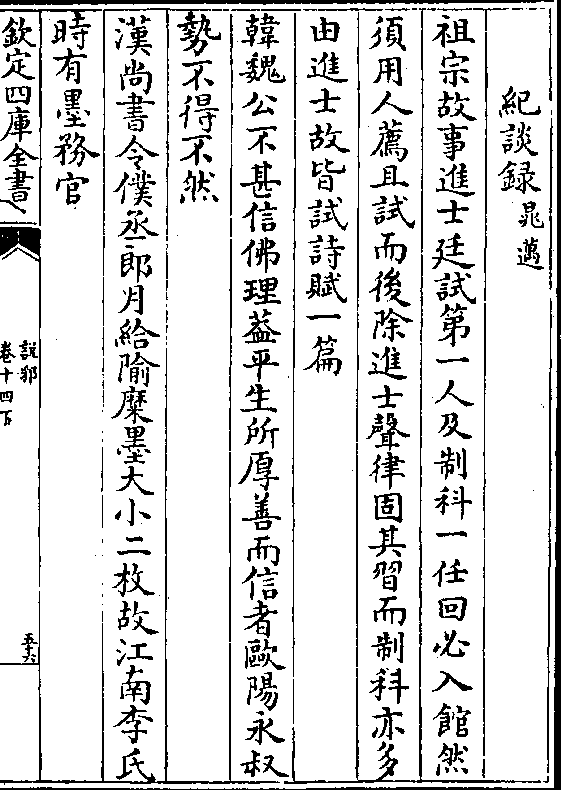 紀談録 晁邁
祖宗故事進士廷試第一人及制科一任回必入館然
須用人薦且試而後除進士聲律固其習而制科亦多
由進士故皆試詩賦一篇
韓魏公不甚信佛理葢平生所厚善而信者歐陽永叔
勢不得不然
漢尚書令僕丞郎月給隃糜墨大小二枚故江南李氏
時有墨務官
欽定四庫全書
說郛
卷十四下
五十六